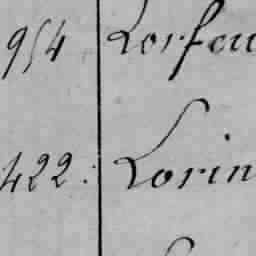 954 Lorfeu
422. Lorin